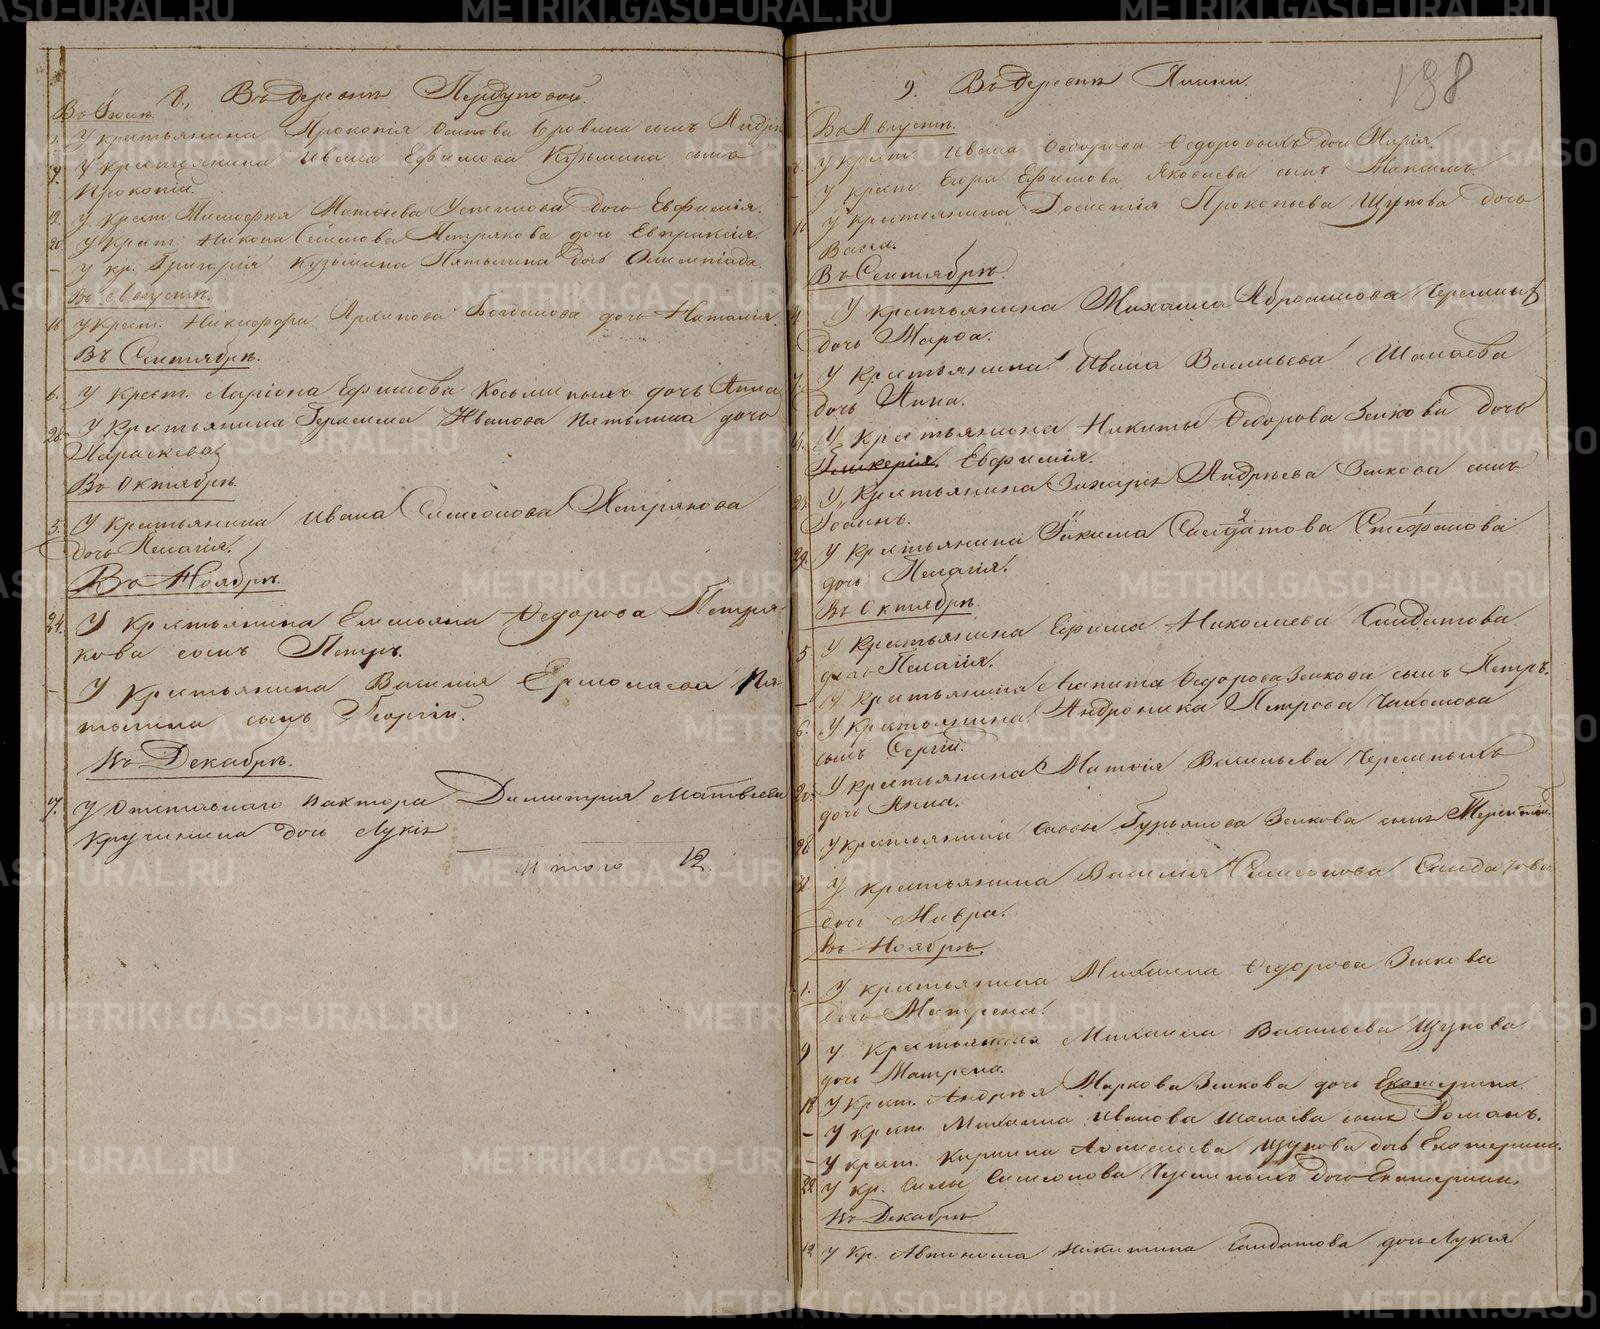 8. Въ деревнѣ
Въ Іюлѣ.
1. У крестьянина Прокопія Осипова сынъ Андрей
У крестьянина Ивана Ефимова Кузьмина сынъ
Прокопій.
19. У крест. Тимофея Матвѣева Устинова дочь Евфимія.
20. У крест. Никона Симеонова Петрякова дочь Евпраксія.
– У кр. Григорія Кузьмина Пятыгина дочь Олимпіада.
Въ Августѣ.
16 У крест. Никифора Архипова Богданова дочь Наталія.
Въ Сентябрѣ.
6. У крест. Ларіона Ефимова Косьминыхъ дочь Анна
28. У крестьянина Герасима Иванова Пятыгина дочь
Параскева.
Въ Октябрѣ.
5. У крестьянина Ивана Симеонова Петрякова
дочь Пелагія.
Въ Ноябрѣ.
24. У крестьянина Емельяна Ѳедорова Петря-
кова сынъ Петръ.
– У крестьянина Василія Ермолаева Пя-
тыгина сынъ Георгій.
Въ Декабрѣ.
7. У отставнаго Димитрія Матвѣева
Кручинина дочь Лукія
Итого 12.
198
9. Въ деревнѣ
Въ Августѣ.
8. У крест. Ивана Ѳедорова Ѳедоровыхъ дочь Марія.
– У крест. Егора Ефимова Яковлева сынъ Максимъ.
16 У крестьянина Прокопьева Щупова дочь
Васса.
Въ Сентябрѣ.
4. У крестьянина Михаила Аброамова Черемныхъ
дочь Марѳа.
7. У крестьянина Ивана Васильева Шалаева
дочь Анна.
У крестьянина Никиты Ѳедорова Зенкова дочь
Гликерія. Евфимія.
У крестьянина Захаріи Андрѣева Зенкова сынъ
Іоаннъ.
29. У крестьянина Іакима Стефанова
дочь Пелагія.
Въ Октябрѣ.
5 У крестьянина Ефима Николаева Саидатова
дочь Пелагія.
– У крестьянина Никита Ѳедорова Зенкова сынъ Петръ.
6. У крестьянина Андроника Петрова
сынъ Сергій.
20. У крестьянина Матвія Васильева Черемныхъ
дочь Анна.
28. У крестьянина Саввы Гурьянова Зенкова сынъ Терентій.
У крестьянина Василія Симеонова Саидатова
дочь Мавра.
Въ Ноябрѣ.
1. У крестьянина Михаила Ѳедорова Зенкова
дочь Матрена.
9 У крестьянина Михаила Васильева Щупова
дочь Матрена.
18 У крест. Андрѣя Маркова Зенкова дочь Екатерина.
– У крест. Михаила Иванова Шалаева сынъ Романъ.
– У крест. Кирила Щупова дочь Екатерина.
22 У кр. Силы Симеонова Черемныхъ дочь Екатерина.
Въ Декабрѣ
12. У кр. Автонома Никитина Саидатова дочь Лукія